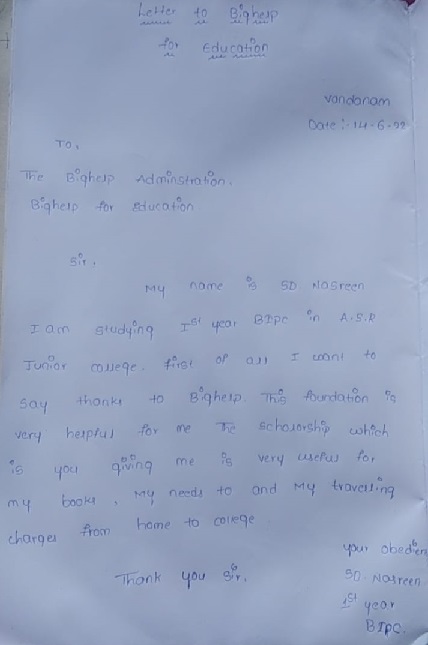 Letter to Bighelp
for Education
Vandanam
Date :- 14-6-22
To,
The Bighelp Adminstration.
Bighelp for Education
Sir,
My name is SD. Nasreen
I am studying Ist year BIPC in A.S.R
Junior college. First of all I want to
say thanks to Bighelp. This foundation is
very helpful for me The scholorship which
is you giving me is very useful for
my books, My needs to and My travelling
charges from home to college
Thank you Sir.
your obedien
SD. Nasreen
1st year
BIPC.